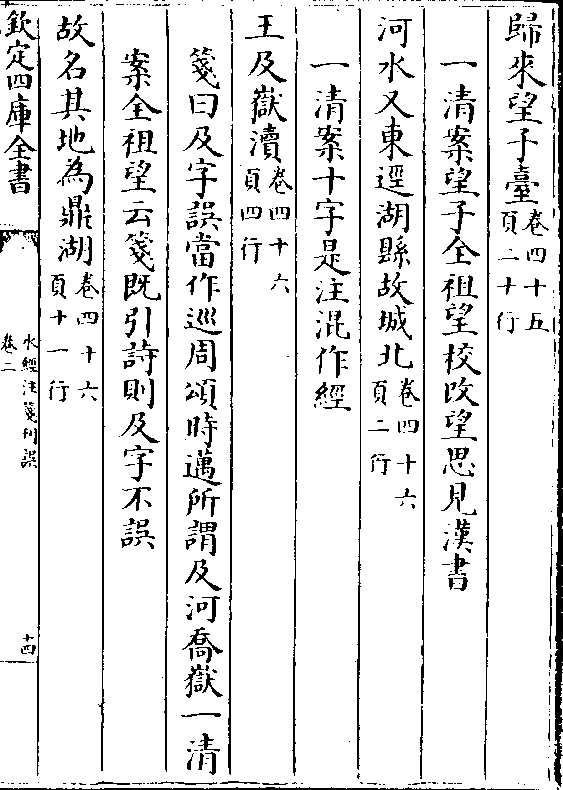 歸來望子臺卷四十五
頁二十行
一清案望子全祖望校改望思見漢書
河水又東逕湖縣故城北卷四十六
頁二行
一清案十字是注混作經
王及嶽瀆卷四十六
頁四行
箋曰及字誤當作巡周頌時邁所謂及河喬嶽一清
案全祖望云箋既引詩則及字不誤
故名其地為鼎湖卷四十六
頁十一行
欽定四庫全書
水經注箋刊誤
卷二
十四